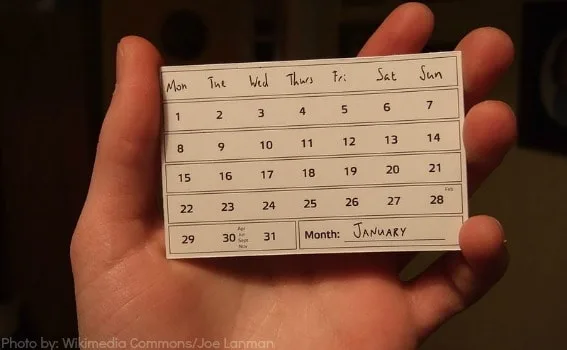 Mon Tue Wed Thurs Fri Sat Sun
1 2 3 4 5 6 7
8 9 10 11 12 13 14
15 16 17 18 19 20 21
Feb
22 23 24 25 26 27 28
29 30 31 Month: JANUARY
Photo by: Wikimedia Commons/Joe Lanman